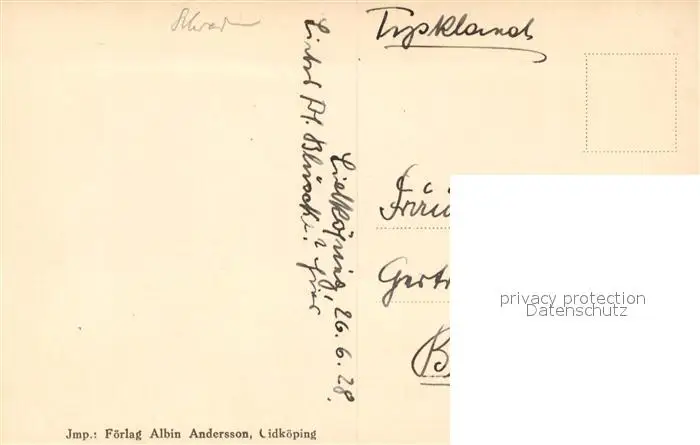 Schwed
Tyskland
Lidköping, 26. 6. 28.
Liebes Frl. Blaschke! Hier
Fräu
Gertr
B
privacy protection
Datenschutz
Jmp.: Förlag Albin Andersson, Lidköping